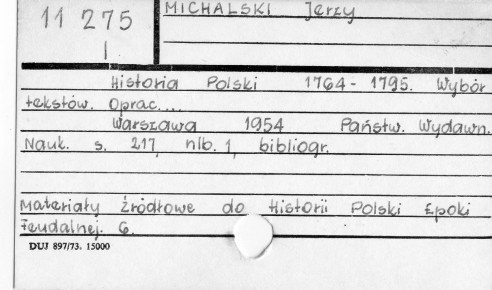 11 275
I
MICHALSKI Jerzy
Historia Polski 1764-1795. Wybór
tekstów. Oprac....
Warszawa 1954 Państw. Wydawn.
Nauk. s. 217, nlb. 1, bibliogr.
Materiały źródłowe do Historii Polski Epoki
Feudalnej. 6.
DUJ 897/73. 15000